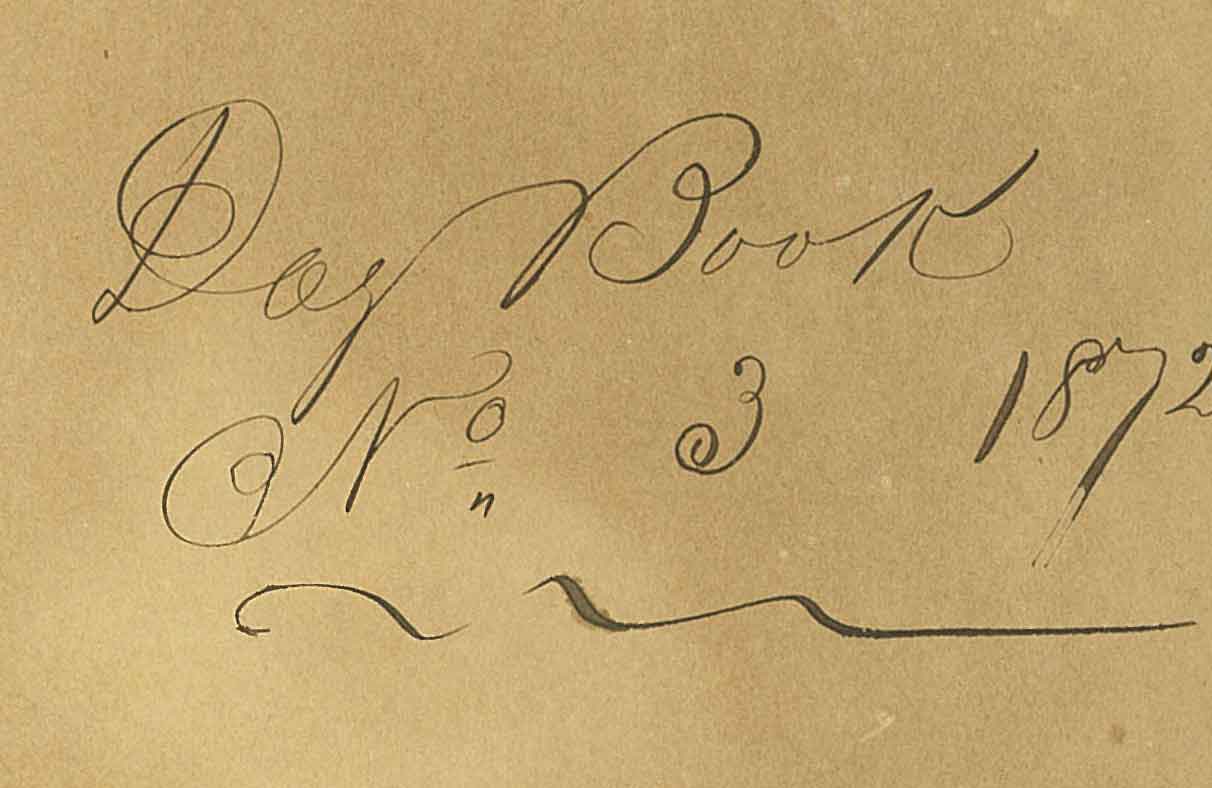 Day Book
No 3 1872